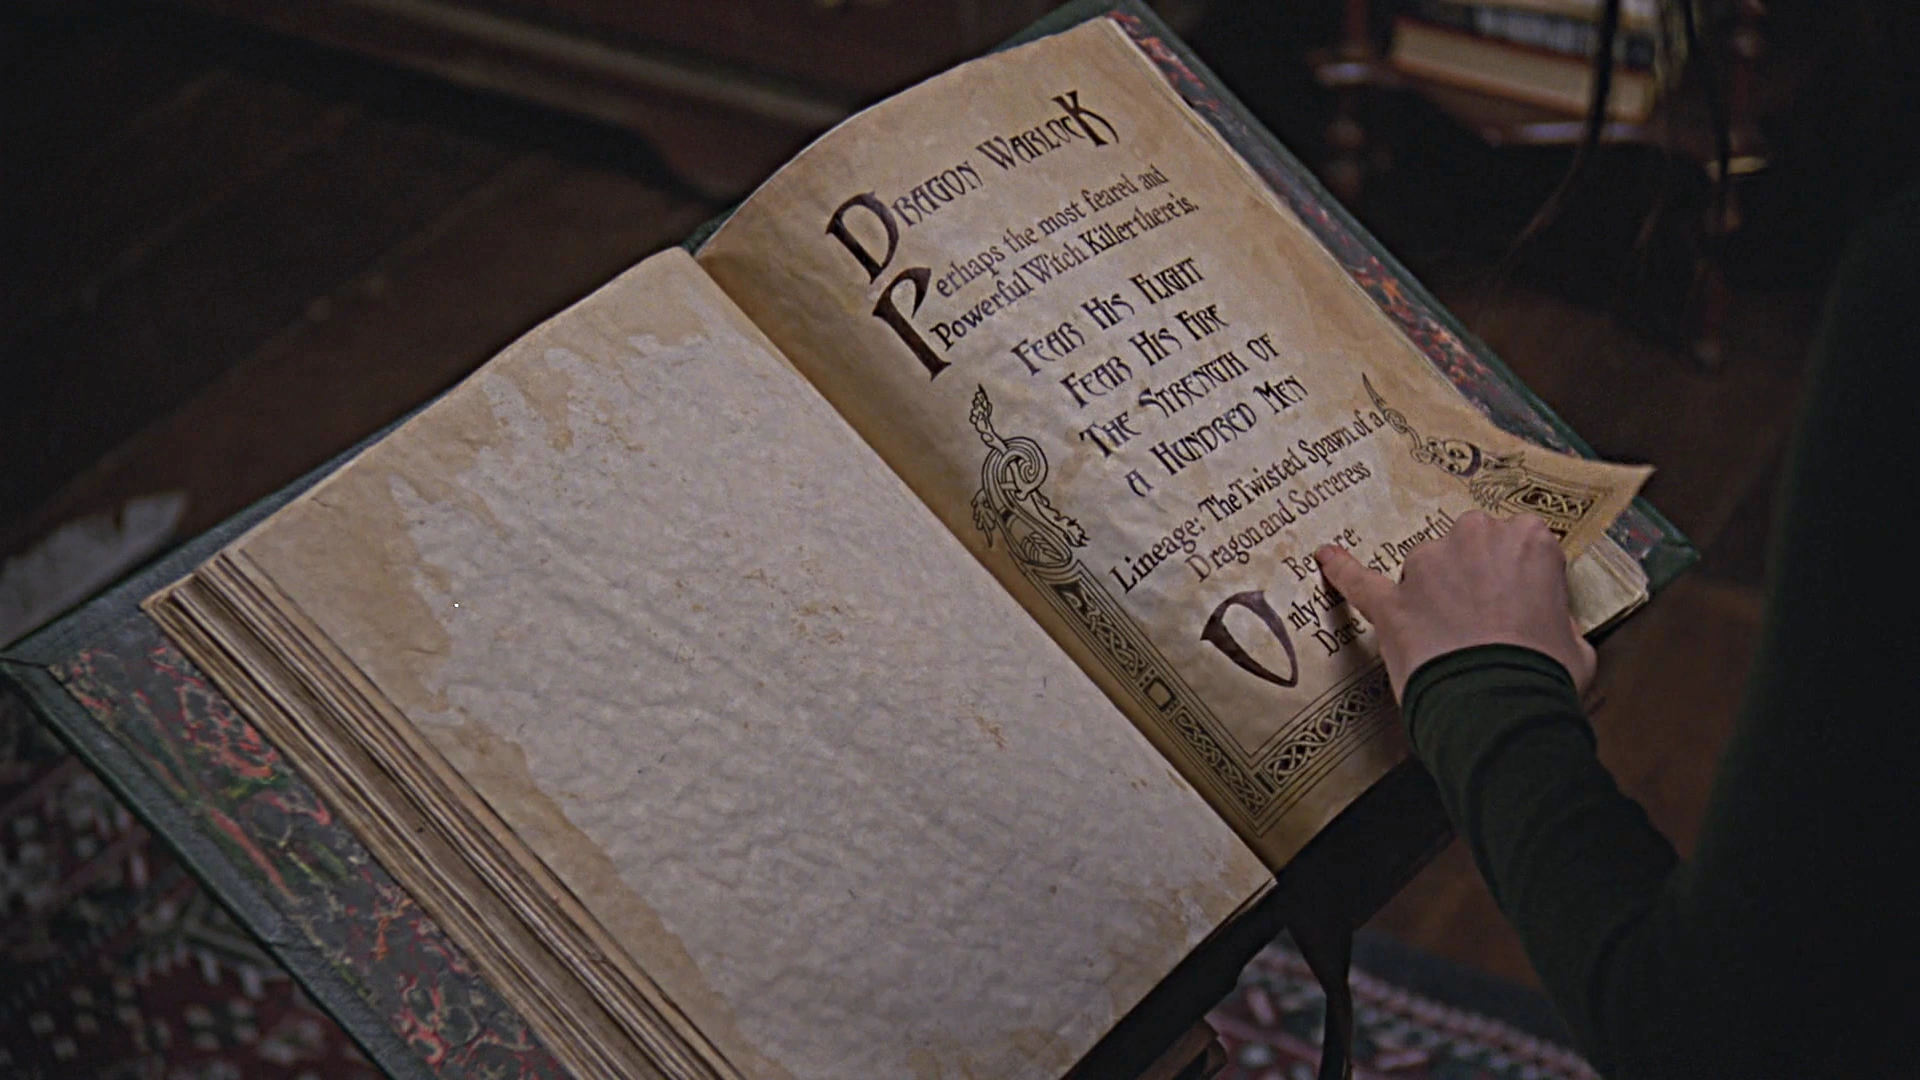 Dragon Warlock
Perhaps the most feared and
Powerful Witch Killer there is.
Fear His Flight
Fear His Fire
The Strength of
a Hundred Men
Lineage: The Twisted Spawn of a
Dragon and Sorceress
Beware:
Only the Powerful
Dare